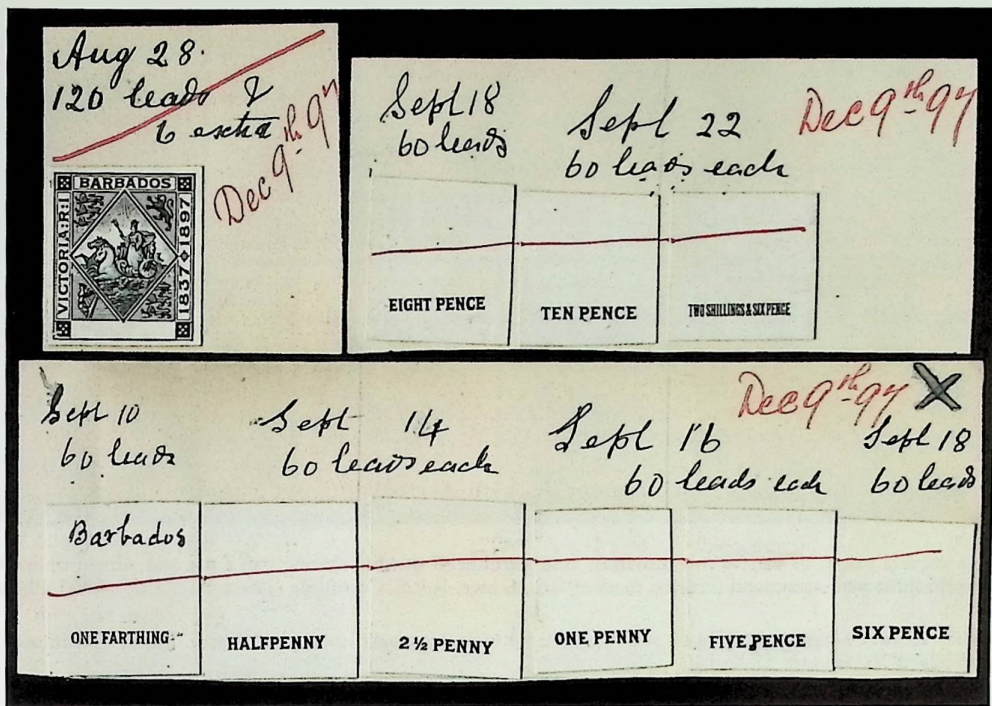 Aug 28.
120 leads &
6 extra
Dec 9th 97
BARBADOS
VICTORIA:R:I
1837 1897
Sept 18
60 leads
Sept 22
60 leads each
Dec 9th 97
EIGHT PENCE
TEN PENCE
TWO SHILLINGS & SIX PENCE
Dec 9th 97
Sept 10
60 leads
Sept 14
60 leads each
Sept 16
60 leads each
Sept 18
60 leads
Barbados
ONE FARTHING
HALFPENNY
2½ PENNY
ONE PENNY
FIVE PENCE
SIX PENCE